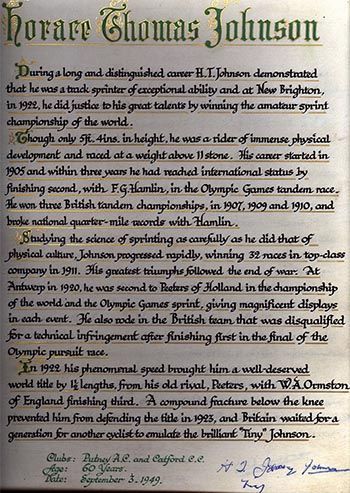 Horace Thomas Johnson
During a long and distinguished career H.T. Johnson demonstrated
that he was a track sprinter of exceptional ability and at New Brighton,
in 1922, he did justice to his great talents by winning the amateur sprint
championship of the world.
Though only 5ft. 4ins. in height, he was a rider of immense physical
development and raced at a weight above 11 stone. His career started in
1905 and within three years he had reached international status by
finishing second, with F.G. Hamlin, in the Olympic Games tandem race.
He won three British tandem championships, in 1907, 1909 and 1910, and
broke national quarter-mile records with Hamlin.
Studying the science of sprinting as carefully as he did that of
physical culture, Johnson progressed rapidly, winning 32 races in top-class
company in 1911. His greatest triumphs followed the end of war. At
Antwerp in 1920, he was second to Peeters of Holland in the championship
of the world and the Olympic Games sprint, giving magnificent displays
in each event. He also rode in the British team that was disqualified
for a technical infringement after finishing first in the final of the
Olympic pursuit race.
In 1922 his phenomenal speed brought him a well-deserved
world title by 1½ lengths, from his old rival, Peeters, with W.A. Ormston
of England finishing third. A compound fracture below the knee
prevented him from defending the title in 1923, and Britain waited for a
generation for another cyclist to emulate the brilliant "Tiny" Johnson.
Clubs: Putney A.C. and Catford C.C.
Age: 60 Years.
Date: September 3, 1949.
H T Johnson